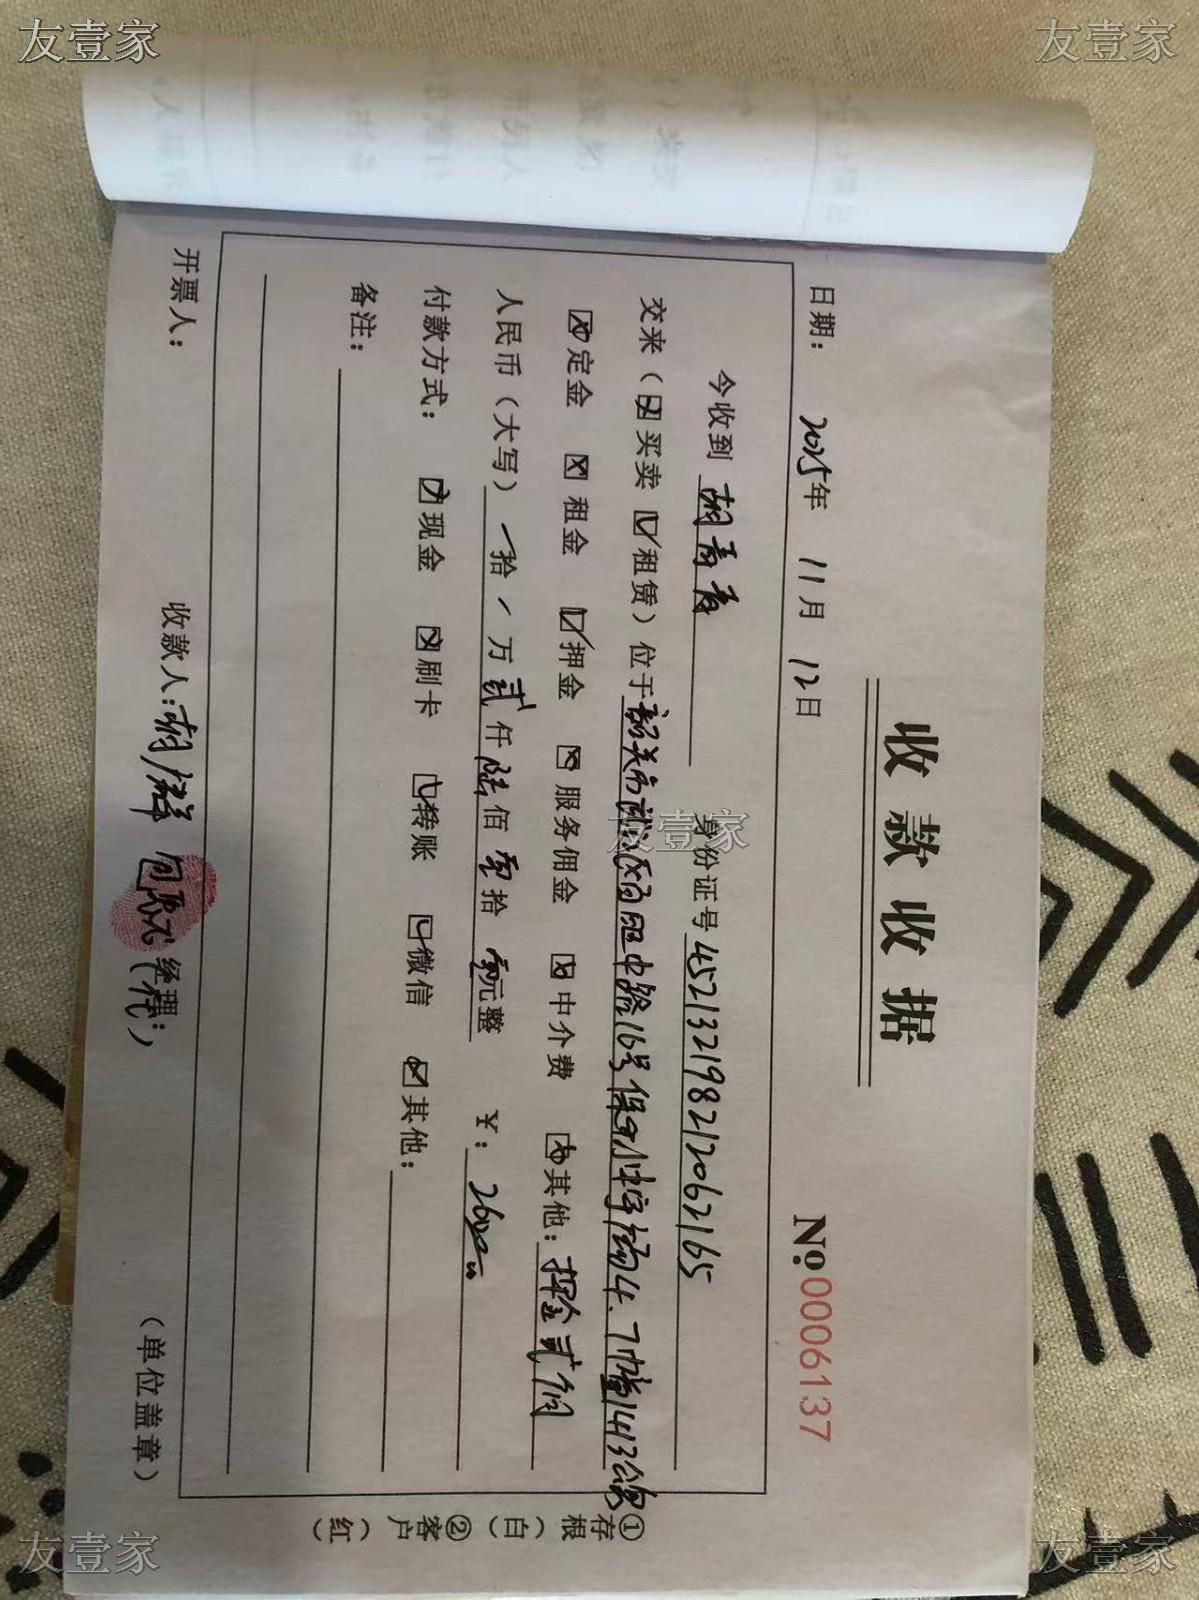 友壹家
友壹家
收款收据
No.0006137
日期： 2025年 11月 12日
今收到 胡青青 身份证号 452132198212062165
交来（☒买卖 ☑租赁）位于韶关市浈江区 中路16号保 4、7幢1413
☒定金 ☒租金 ☑押金 ☒服务佣金 ☒中介费 其他：押金贰佰
人民币（大写） / 拾 / 万 贰 仟 陆 佰 零 拾 零 元整 ¥：2600
付款方式： 现金 刷卡 转账 微信 其他：
备注：
开票人： 收款人： 经理： （代） （单位盖章）
①存根（白）
②客户（红）
友壹家
友壹家
友壹家